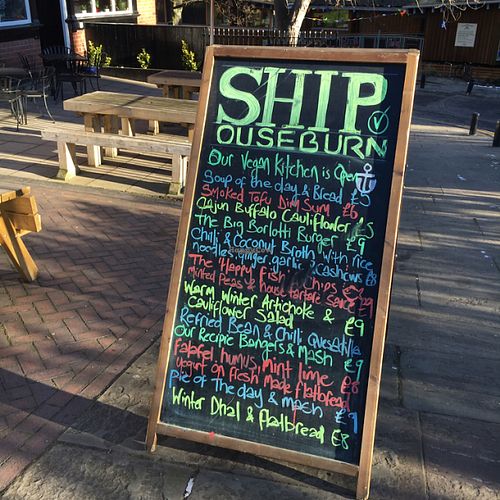 SHIP
OUSEBURN
Our Vegan Kitchen is Open
Soup of the day & Bread £5
Smoked Tofu Dim Sum £6
Cajun Buffalo Cauliflower £5
The Big Borlotti Burger £9
Chilli & Coconut Broth with rice
noodles, ginger, garlic & cashews £8
The 'Happy fish' & Chips
Minted Peas & house tartare Sauce £9
Warm Winter Artichoke &
Cauliflower Salad £9
Refried Bean & Chilli Quesadilla
Our Recipie Bangers & Mash £9
Falafel, humus, mint lime £8
yogurt on fresh made flatbread
Pie of the day & mash £9
Winter Dhal & flatbread £8